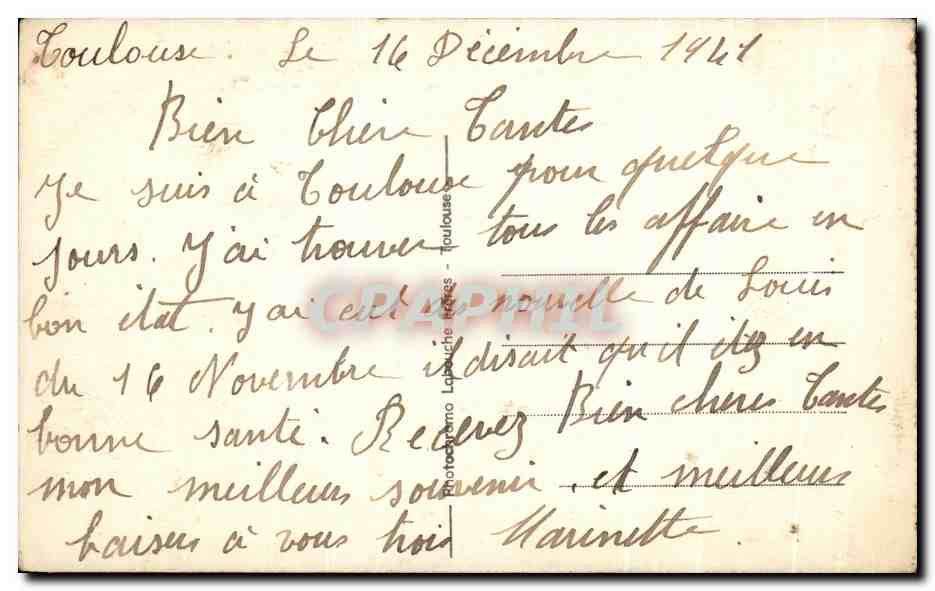 Toulouse. Le 16 Décembre 1941
Bien Chère Tantes
Je suis à Toulouse pour quelque
jours. J'ai trouver tous les affaire en
bon état. J'ai eut des nouvelle de Louis
du 16 Novembre il disait qu'il étez en
bonne santé. Recevez Bien cheres Tantes
mon meilleurs souvenir. et meilleurs
baisers à vous trois Marinette.
Photochromo Labouche Frères - Toulouse
CPAPHIL